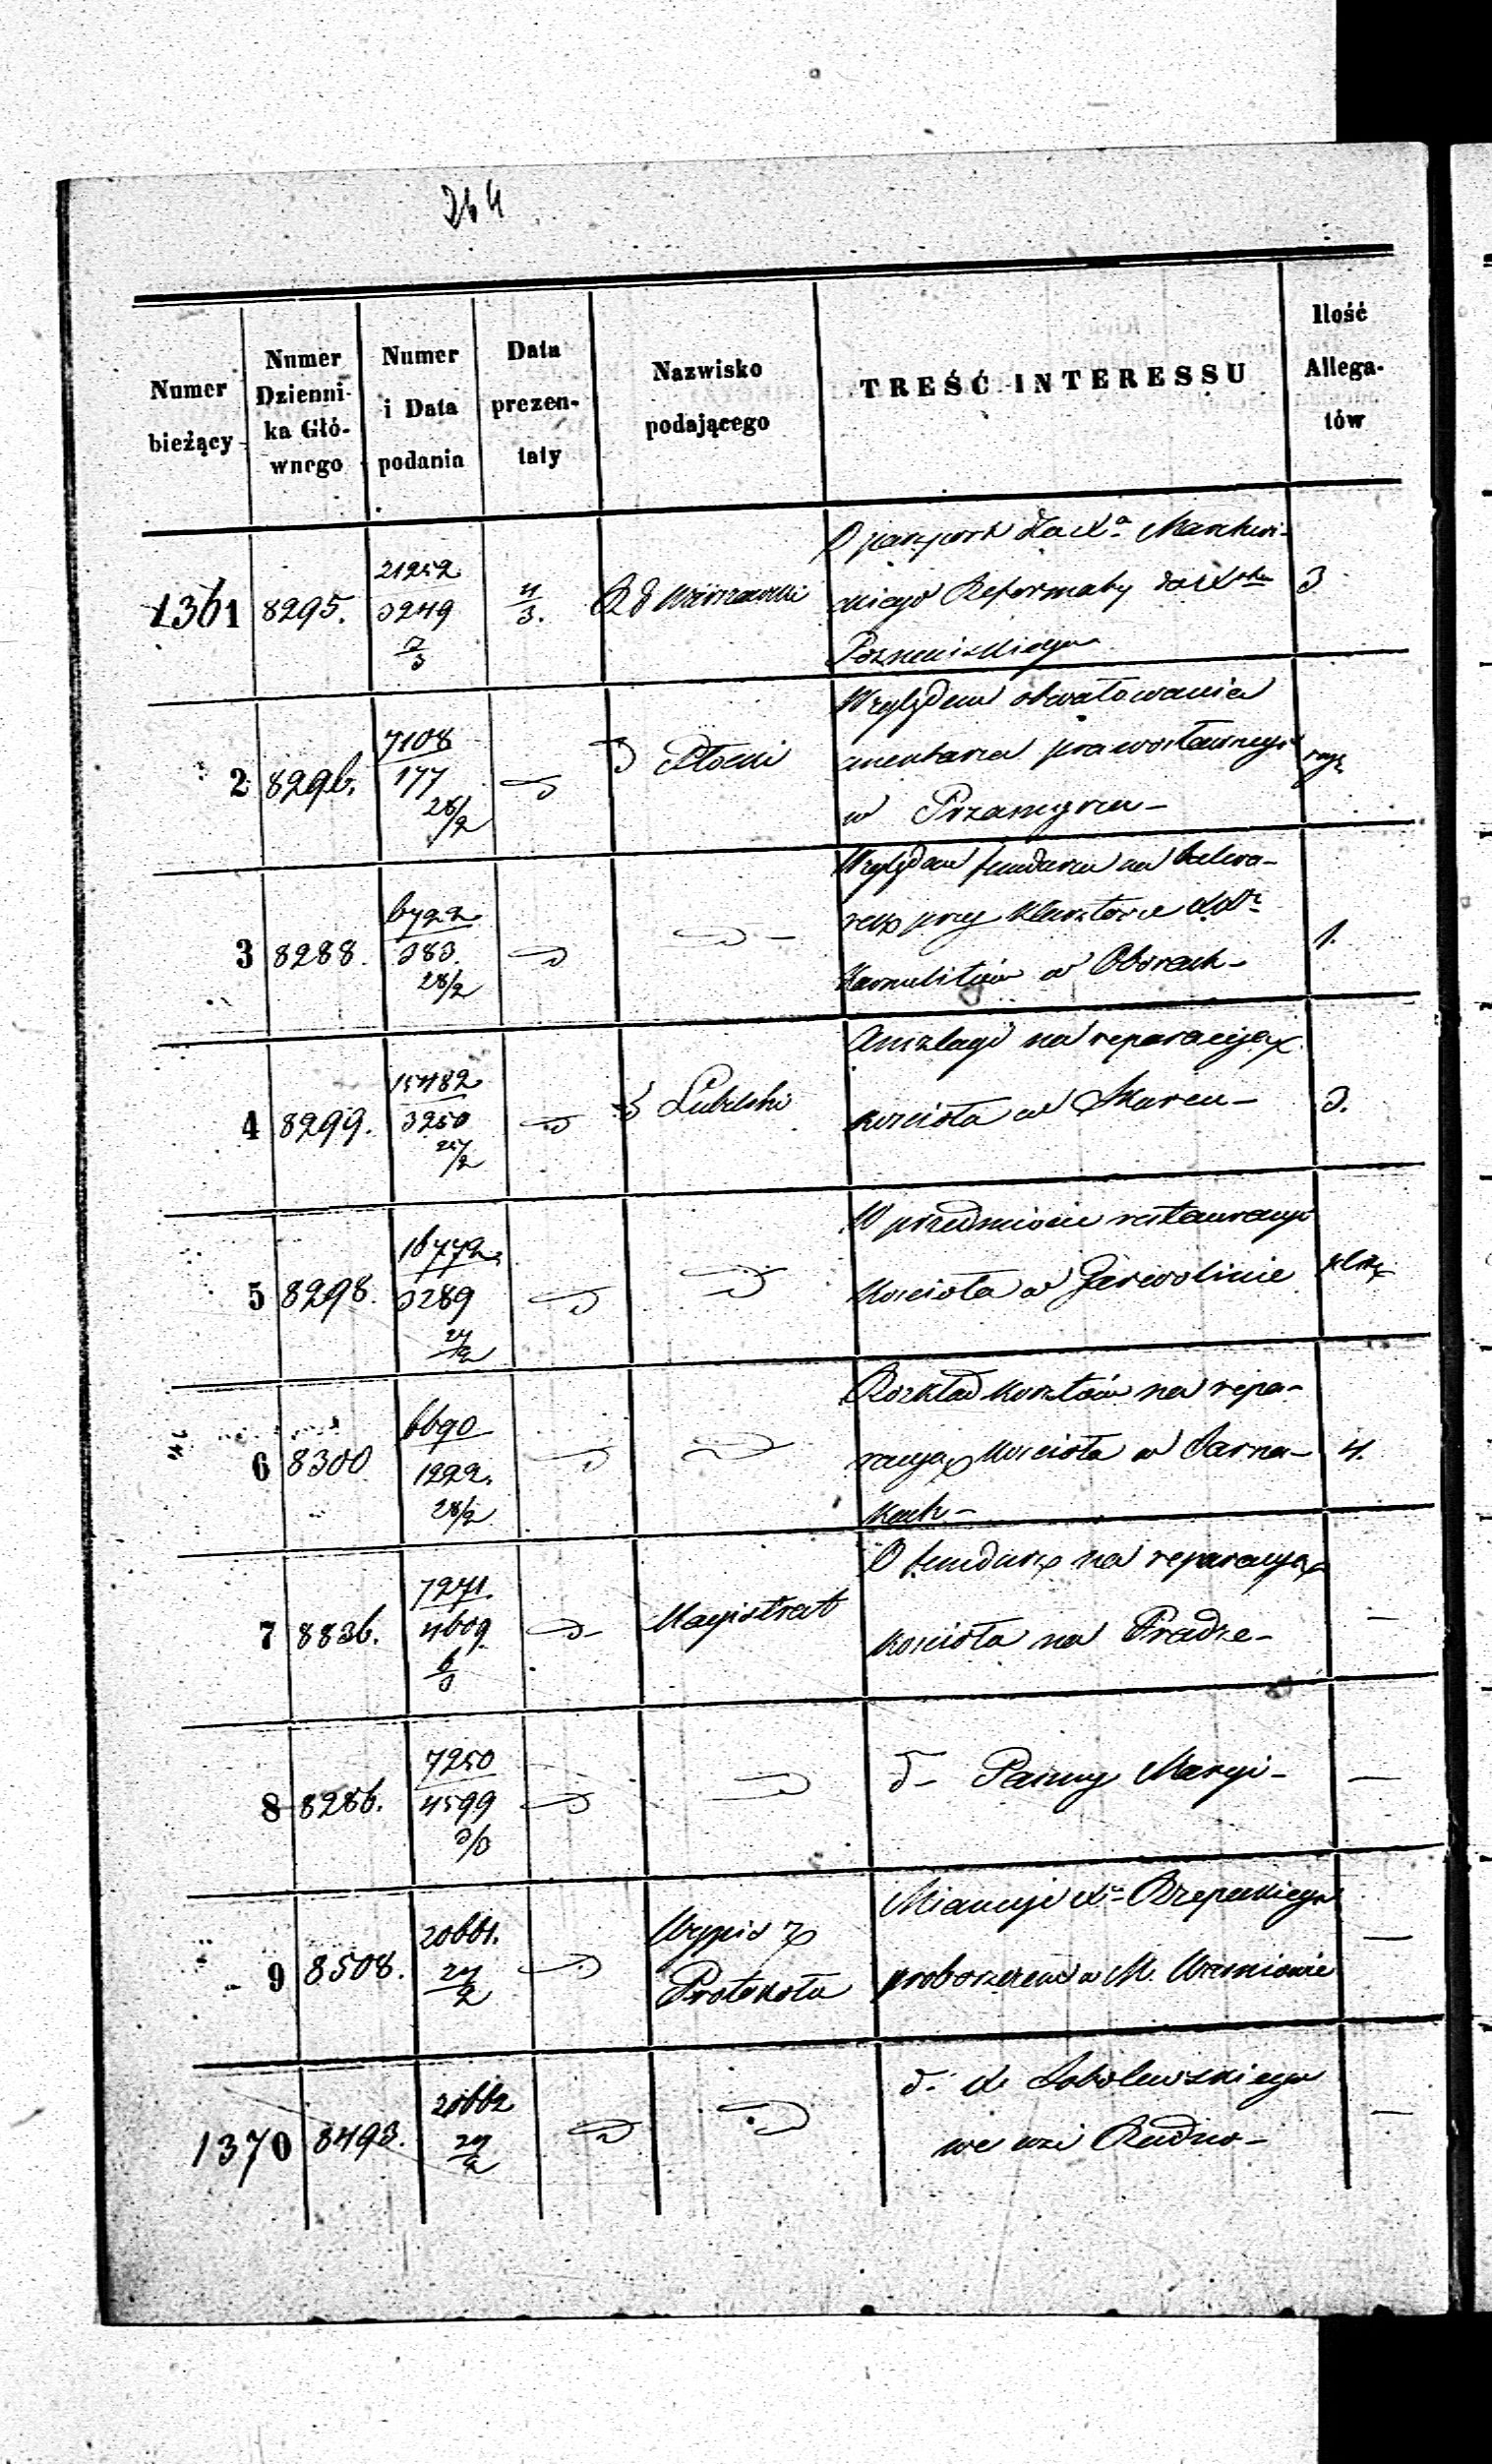 264
Numer bieżący
Numer Dzienni- ka Głó- wnego
Numer i Data podania
Data prezen- taty
Nazwisko podającego
TREŚĆ INTERESSU
Ilość Allega- tów
1361 8295. 21252 3249 2/3 4/3. R G Warszawski
O paszport dla Xa
Reformaty do Xstwa 3
2 8296. 7108 177 28/2 Płocki
Względem obwałowania
cmentarza prawosławnego
w Przasnyszu
3 8288. 6722 383. 28/2
Względem funduszu na
przy klasztorze
Karmelitów w Oborach 1.
4 8299. 15482 3250 27/2 Lubelski
Anszlagi na reparacyą
kościoła w 3.
5 8298. 16772 3289 27/2
W przedmiocie restauracyi
kościoła w Garwolinie
6 8300 6690 1222. 28/2
Rozkład kosztów na repa-
racyą kościoła w Sarna- 4.
kach
7 8836. 7271. 4609. 6/3 Magistrat
O fundusz na reparacyą
kościoła na Pradze —
8 8286. 7250 4599 3/3
d- Panny Maryi —
9 8508. 20661. 27/2 Wypis z
Protokołu
Nominacyi Xa Rzepeckiego
proboszczem w M. —
1370 8493. 20662 27/2
d. X Sobolewskiego
we wsi Rudno —